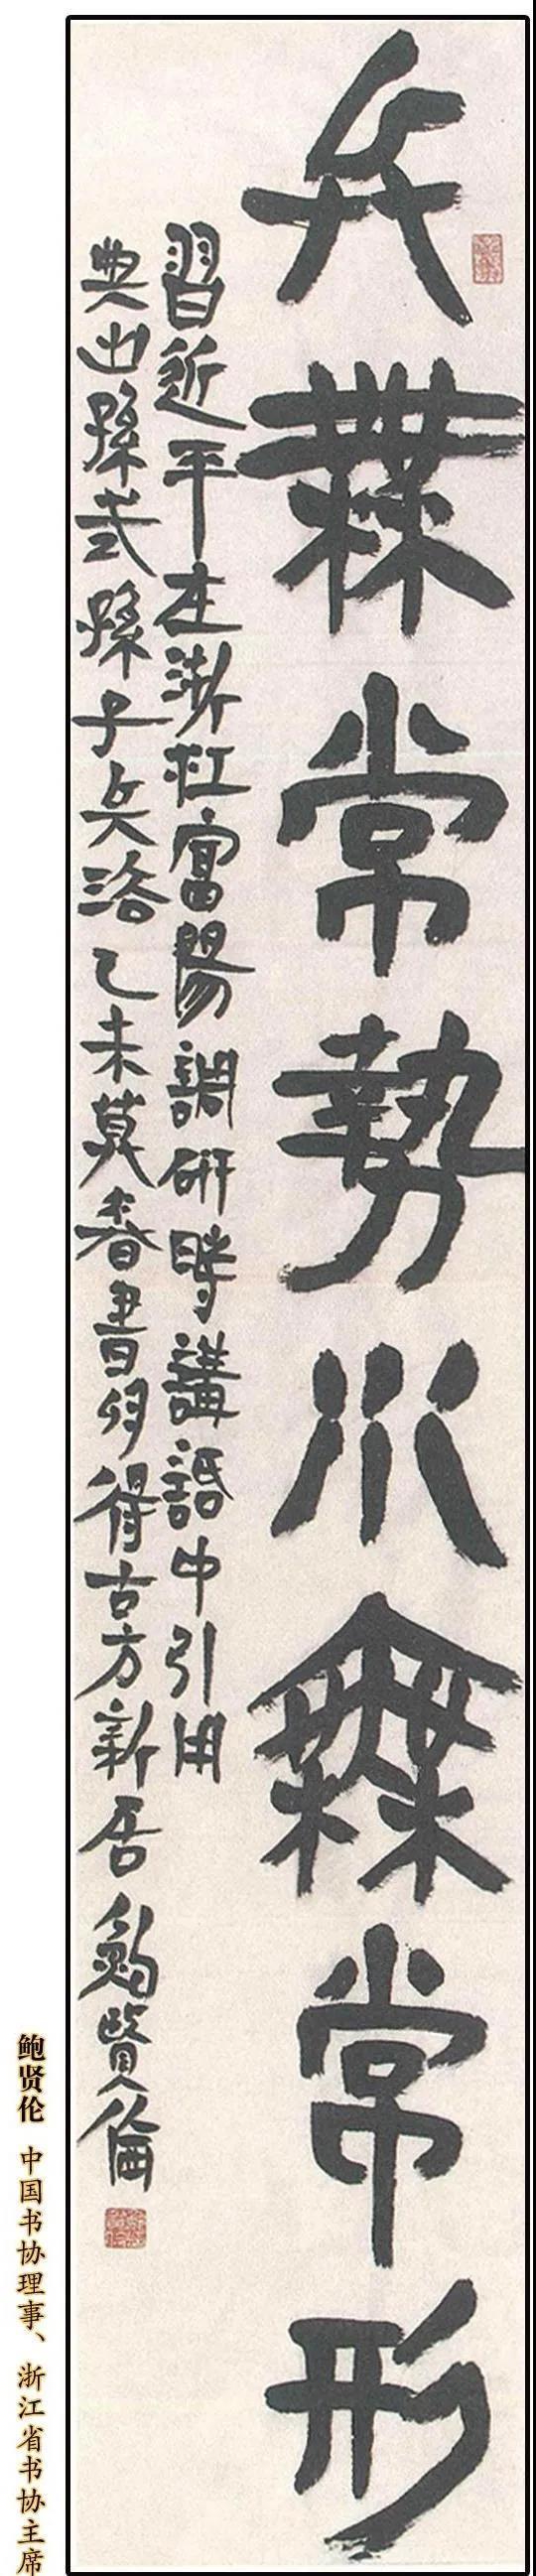 兵無常勢水無常形
習近平在浙江富陽調研時講話中引用
典出孫武孫子兵法乙未莫春書於得古方新居鮑賢倫
鲍贤伦 中国书协理事、浙江省书协主席